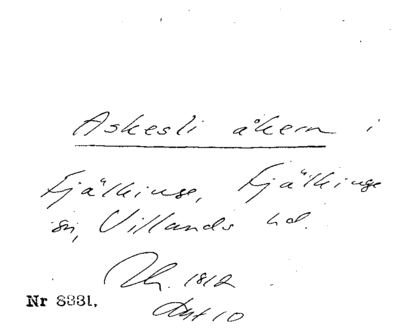 Askesli åkern i
Fjälkinge, Fjälkinge
sn, Villands hd.
1812
Akt 10
Nr 8331.